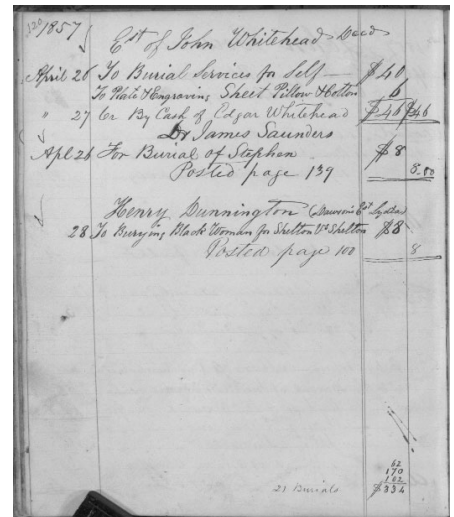 120
1857
Est of John Whitehead Decd
April 26 To Burial Services for Self — $40
To Plate & Engraving Sheet Pillow & Cotton 6
" 27 Cr By Cash of Edgar Whitehead $46 $46
Dr James Saunders
Apl 26 For Burial of Stephen $8
Posted page 139 8.00
Henry Dunnington Est Lydia
28 To Burying Black Woman for Shelton Va Shelton $8
Posted page 100 8
62
170
102
21 Burials $334